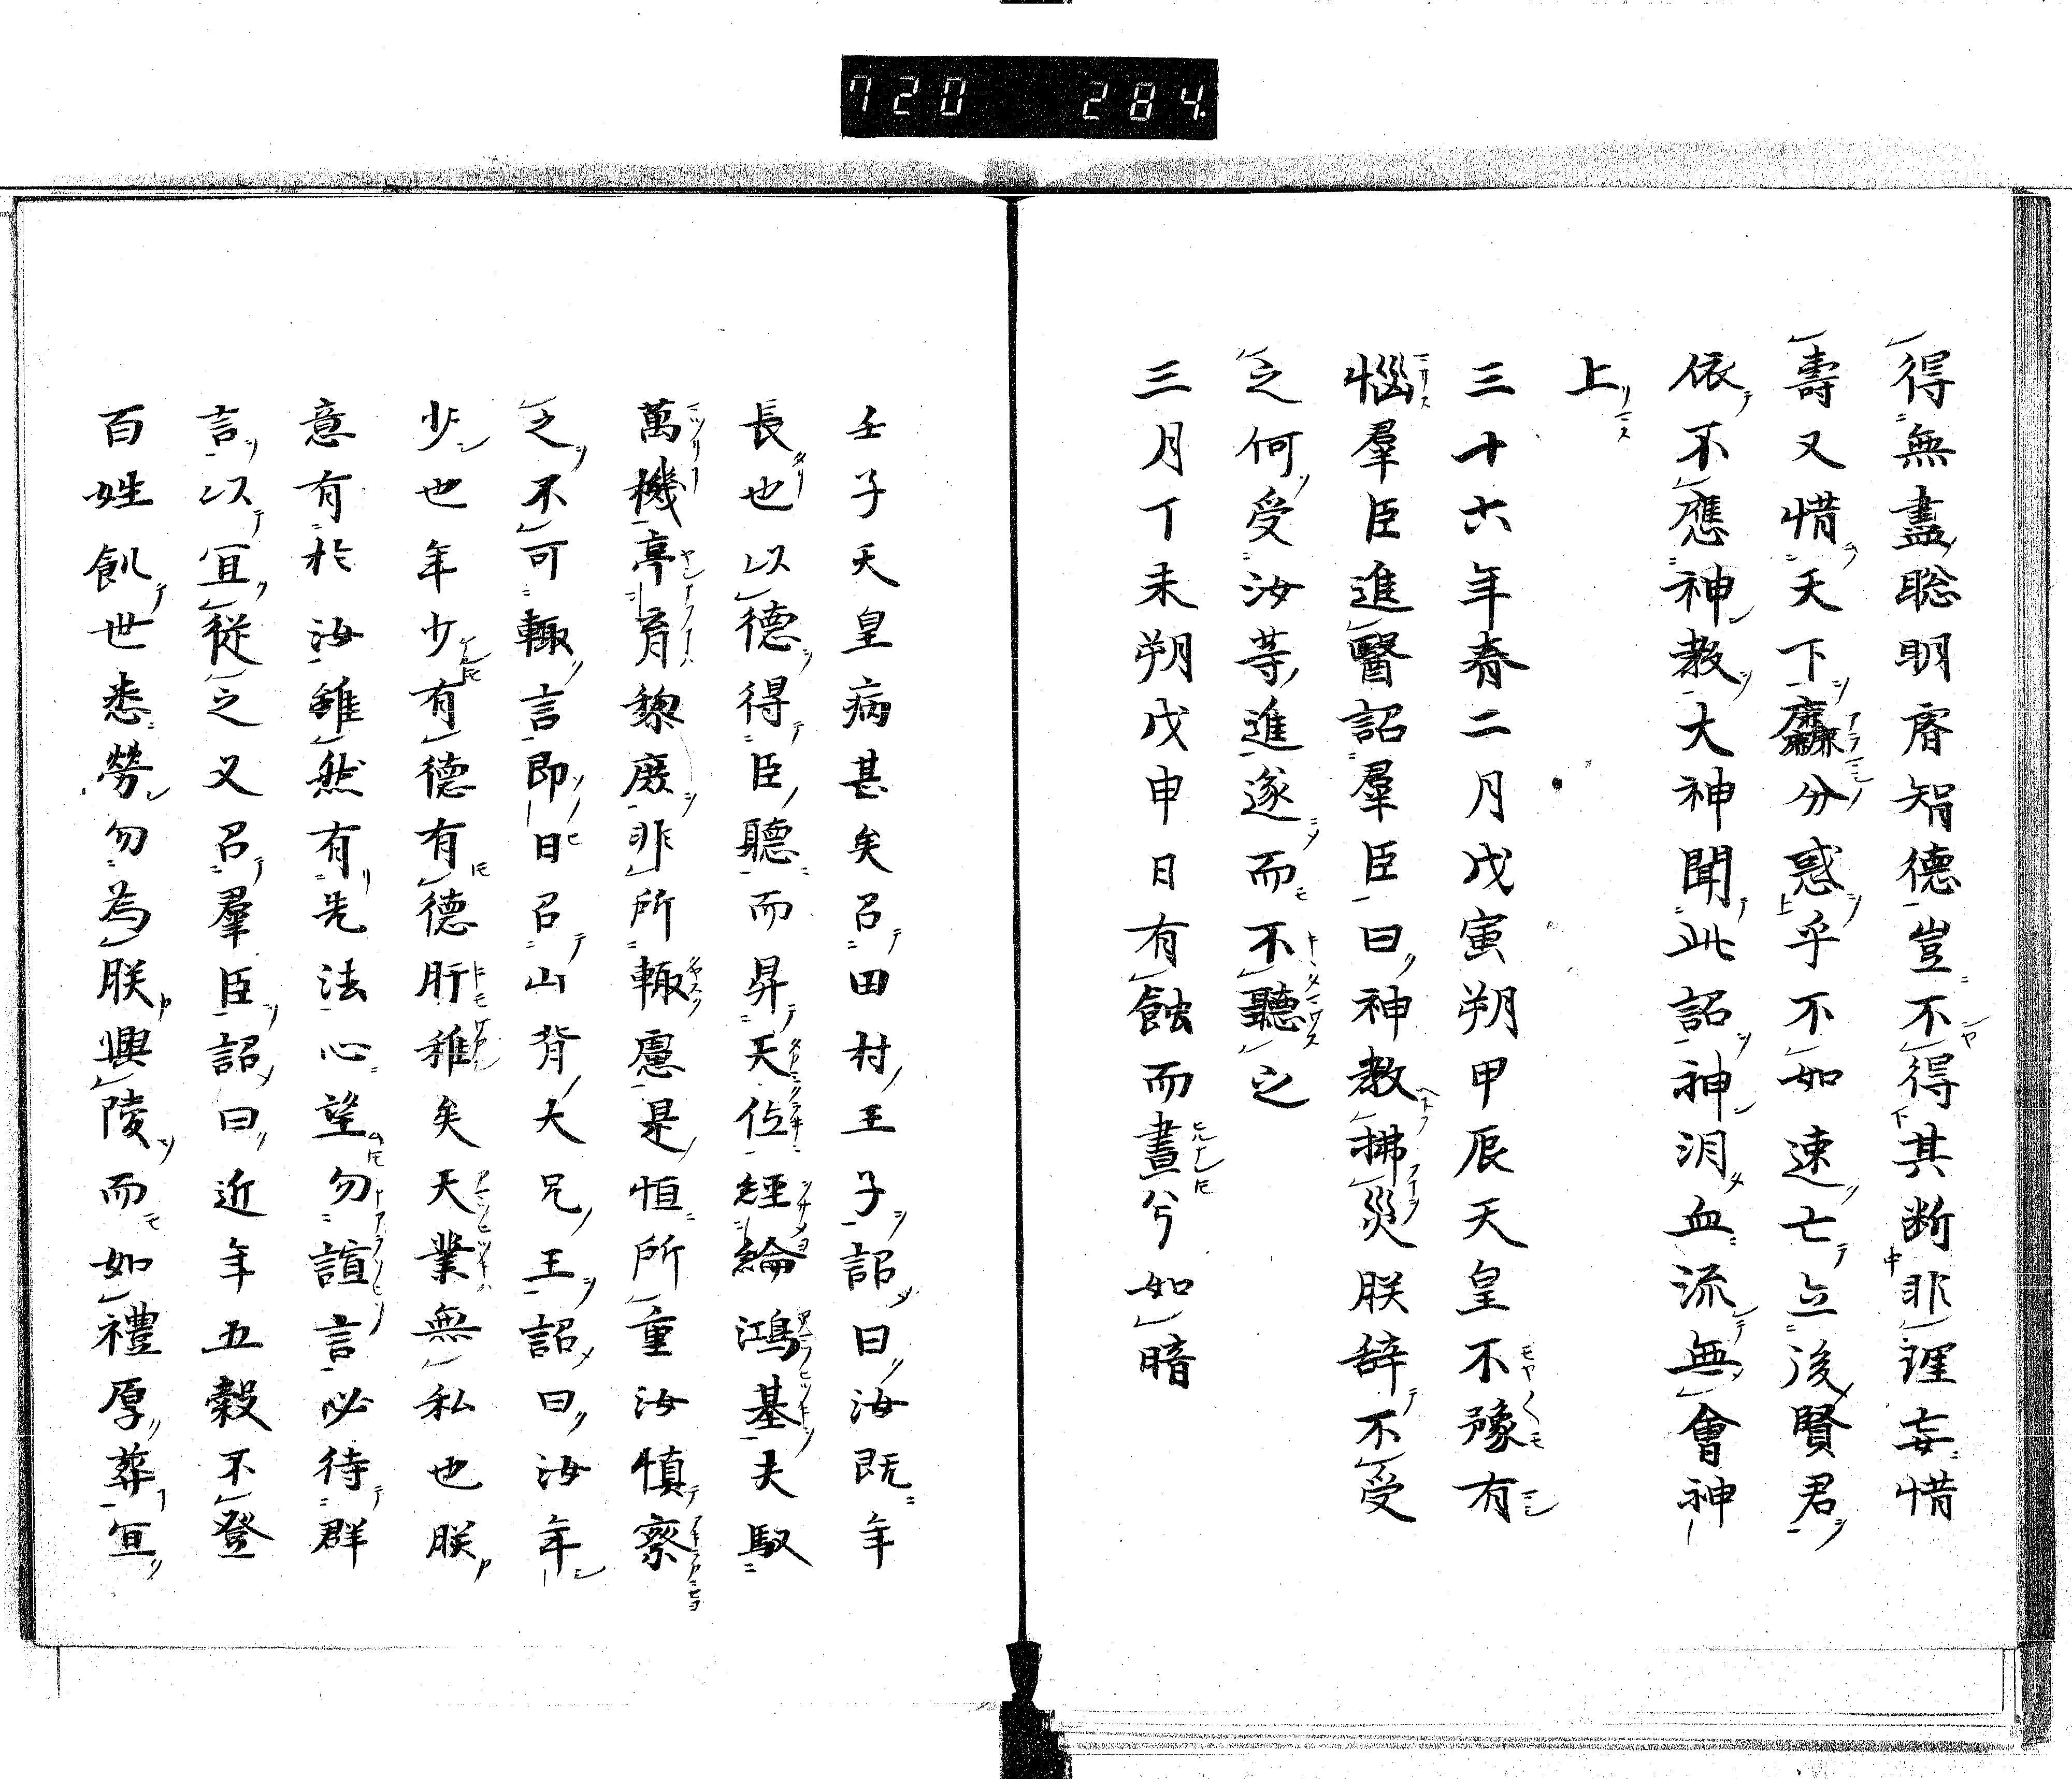 720 284.
得無盡聡明睿智德豈不得其断非誣妄惜
壽又惜天下麤分惑乎不如速亡立後賢君
依不應神教大神聞此詔神泪血流無會神
上
三十六年春二月戊寅朔甲辰天皇不豫有
惱羣臣進醫詔羣臣曰神教拂災朕辞不受
之何受汝等進遂而不聽之
三月丁未朔戊申日有蝕而晝兮如暗
壬子天皇病甚矣召田村王子詔曰汝既年
長也以德得臣聽而昇天位經綸鴻基夫馭
萬機亭育黎庶非所輙慮是恒所重汝慎察
之不可輙言即日召山背大兄王詔曰汝年
少也年少有德有德肝稚矣天業無私也朕
意有於汝雖然有先法心望勿諠言必待群
言以宜從之又召羣臣詔曰近年五穀不登
百姓飢世悉勞勿為朕興陵而如禮厚葬宜